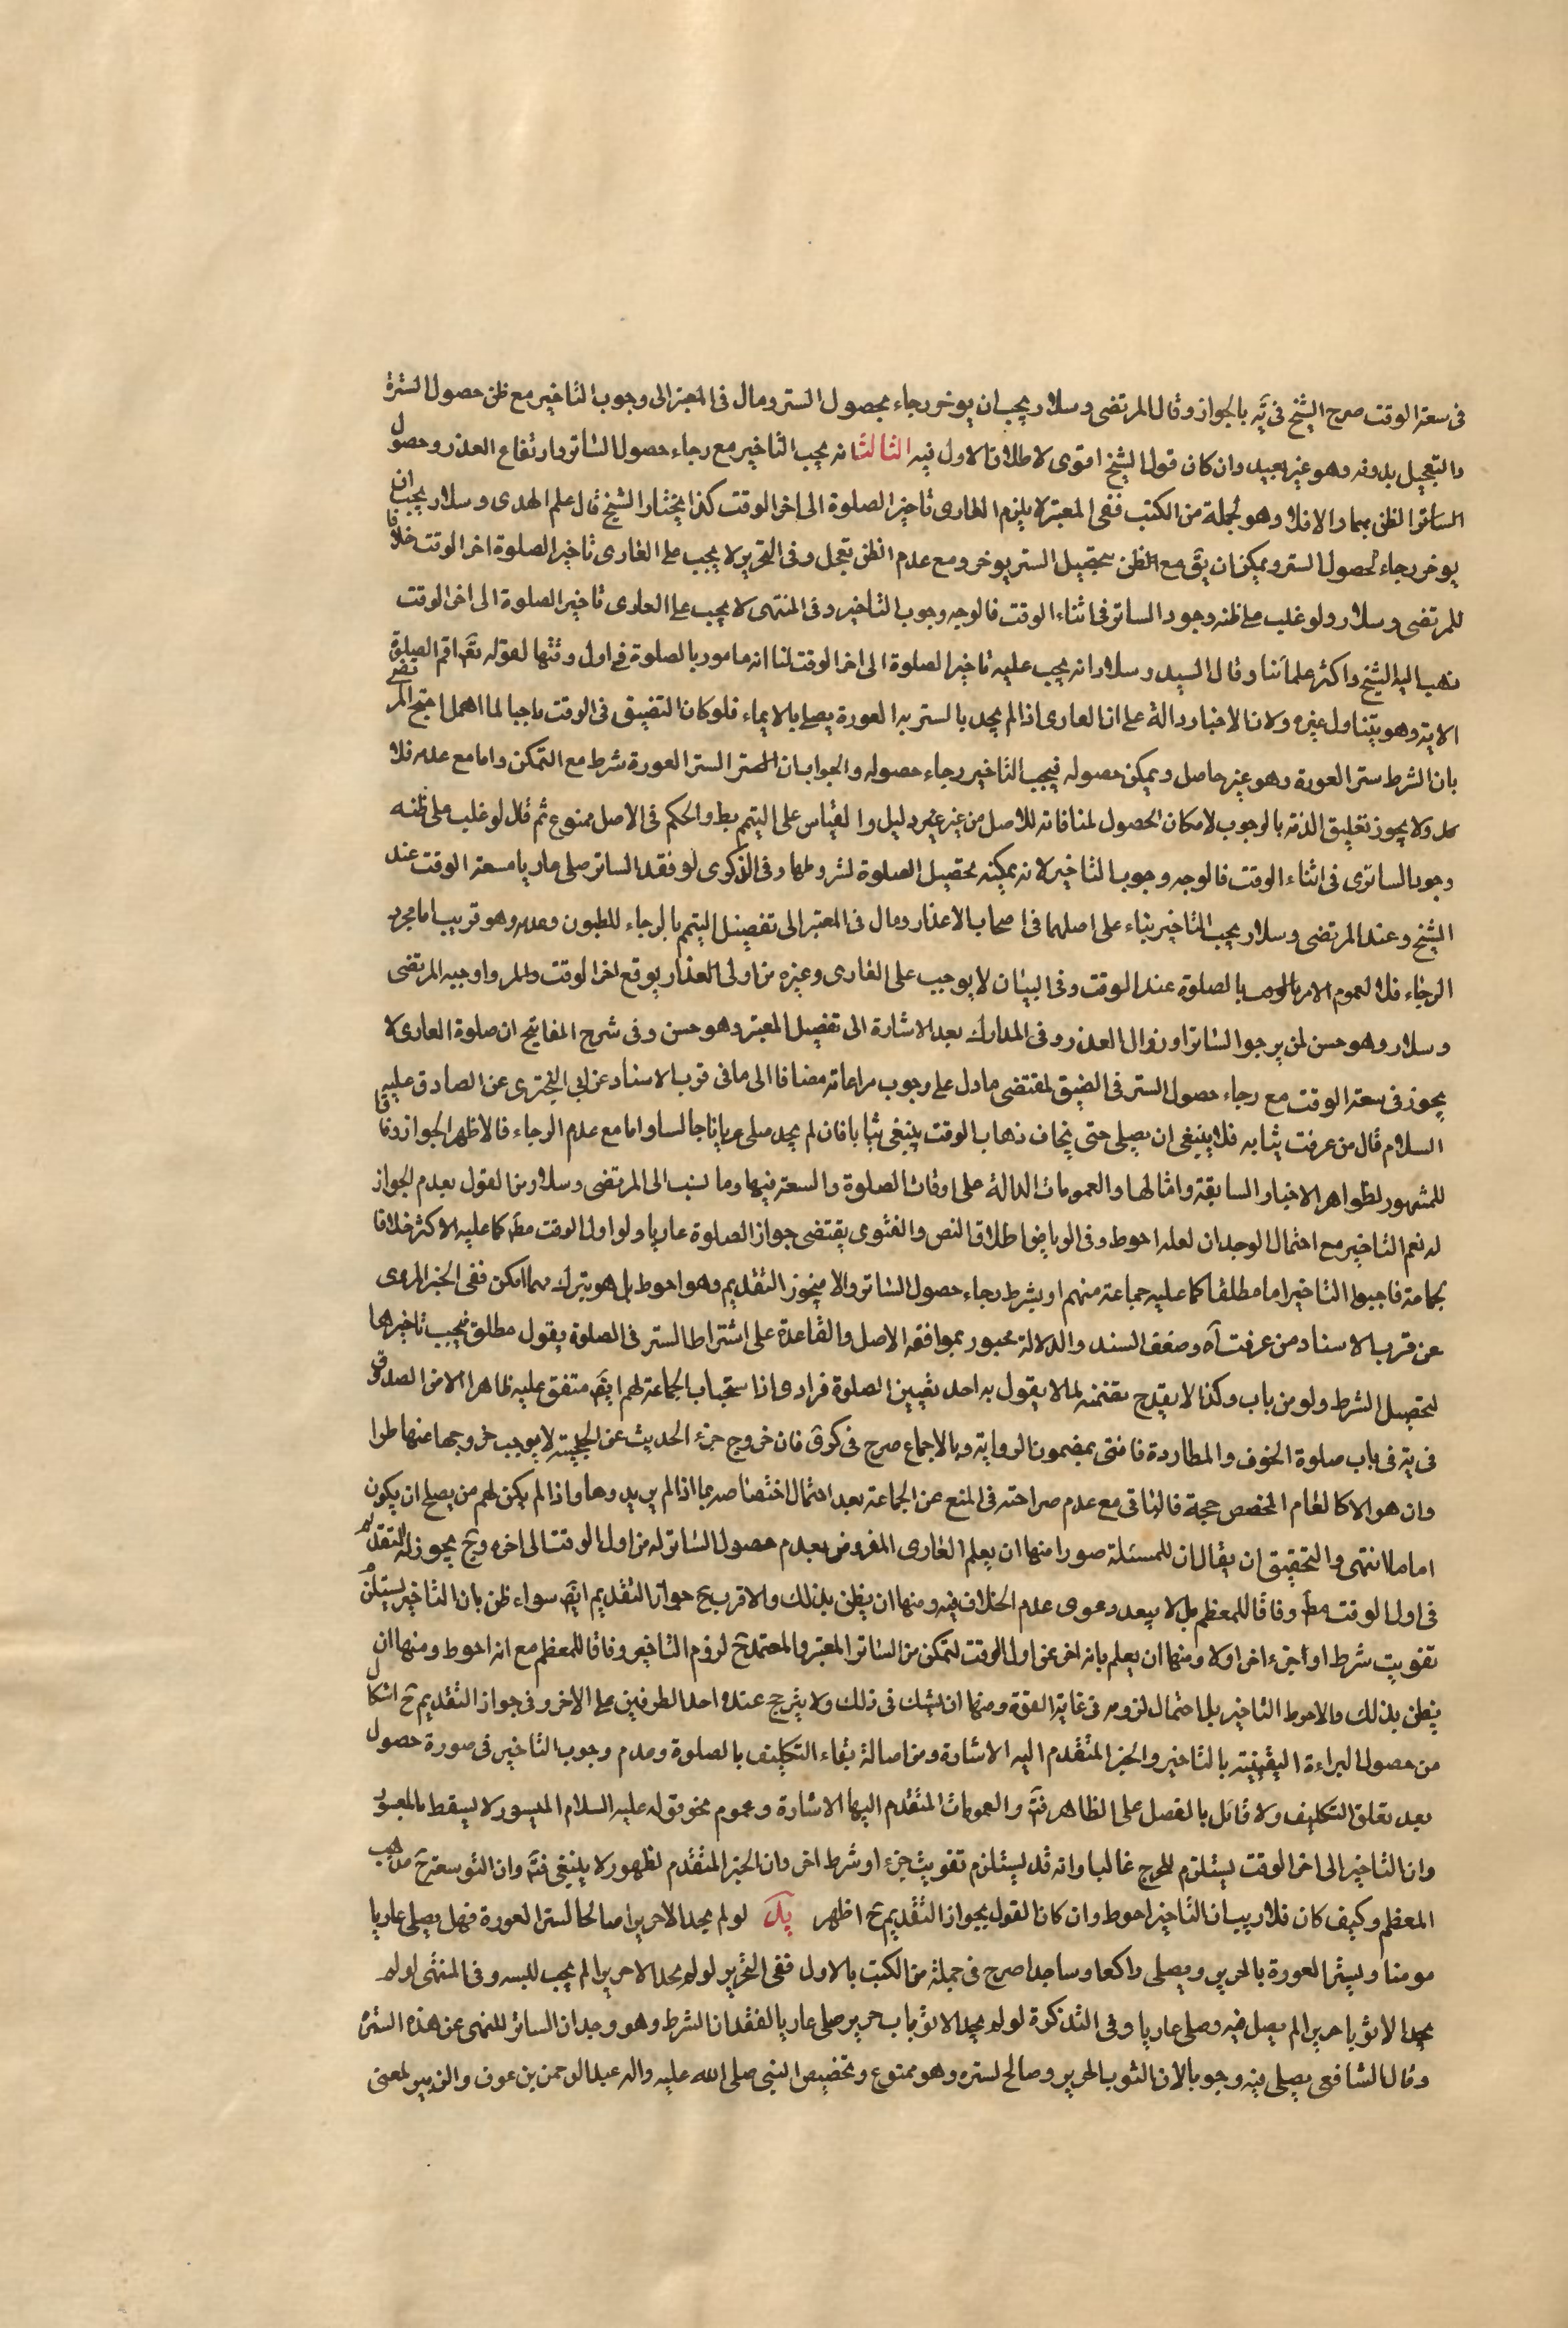 فى سعة الوقت صرح الشيخ فى يّه بالجواز وقال المرتضى وسلار يجب ان يوخر رجاء بحصول الستر ومال فى المعتبر الى وجوب التاخير مع ظن حصول السترة
والتعجيل بدونه وهو غير بعيد وان كان قول الشيخ اقوى لاطلاق الاول فيه الثالث انه يجب التاخير مع رجاء حصول الساتر وارتفاع العذر وحصول
الساتر الظن بهما والا فلا وهو لجملة من الكتب ففى المعتبر لا يلزم العارى تاخير الصلوة الى اخر الوقت كذا يختار الشيخ قال علم الهدى وسلار يجب ان
يوخر رجاء لحصول الستر ويمكن ان يق مع الظن بتحصيل الستر يوخر ومع عدم الظن تعجل وفى التحرير لا يجب على العارى تاخير الصلوة اخر الوقت خلافا
للمرتضى وسلار ولو غلب على ظنه وجود الساتر فى اثناء الوقت فالوجه وجوب التاخير وفى المنتهى لا يجب على العارى تاخير الصلوة الى اخر الوقت
ذهب اليه الشيخ واكثر علمائنا وقال السيد وسلار انه يجب عليه تاخير الصلوة الى اخر الوقت لنا انه مامور بالصلوة فى اول وقتها لقوله تعّ اقم الصلوة
الاية وهو يتناول غيره ولان الاخبار دالة على ان العارى اذا لم يجد بالستر به العورة يصلى بالايماء فلو كان التضيق فى الوقت واجبا لما اهمل احتج المرتضى
بان الشرط ستر العورة وهو غير حاصل ويمكن حصوله فيجب التاخير رجاء حصوله والجواب ان الستر الستر العورة شرط مع التمكن واما مع عدمه فلا
ولا يجوز تعليق الذمة بالوجوب لامكان الحصول لمنافاته للاصل من غير غير دليل والقياس على التيمم بط والحكم فى الاصل ممنوع ثم قال لو غلب على ظنه
وجود الساترى فى اثناء الوقت فالوجه وجوب التاخير لانه يمكنه تحصيل الصلوة لشروطها وفى الذكرى لو فقد الساتر صلى عاريا مسعة الوقت عند
الشيخ وعند المرتضى وسلار يجب التاخير بناء على اصلهما فى اصحاب الاعذار ومال فى المعتبر الى تفصيل التيمم بالرجاء للطنون وعدمه وهو قريب اما مجرد
الرجاء فلا لعموم الامر بالصلوة عند الوقت وفى البيان لا يوجب على العارى وغيره من اولى العذار يوقع اخر الوقت واوجبه المرتضى
وسلار وهو حسن لمن يرجوا الساتر او زوال العذر وفى المدارك بعد الاشارة الى تفصيل المعتبر وهو حسن وفى شرح المفاتيح ان صلوة العارى لا
يجوز فى سعة الوقت مع رجاء حصول الستر فى الضيق لمقتضى ما دل على وجوب مراعاته مضافا الى ما فى قرب الاسناد عن ابى البخترى عن الصادق عليه
السلام قال من غرقت ثيابه فلا ينبغى ان يصلى حتى يخاف ذهاب الوقت يبتغى ثيابا فان لم يجد صلى عريانا جالسا واما مع عدم الرجاء فالاظهر الجواز وفاقا
للمشهور لظواهر الاخبار السابقة وامثالها والعمومات الدالة على اوقات الصلوة والسعة فيها وما نسب الى المرتضى وسلار من القول بعدم الجواز
له نعم التاخير مع احتمال الوجدان لعله احوط وفى الرياض اطلاق النص والفتوى يقتضى جواز الصلوة عاريا ولو اول الوقت مطّ كما عليه الاكثر خلافا
لجماعة فاوجبوا التاخير اما مطلقا كما عليه جماعة منهم او بشرط رجاء حصول الساتر والا فيجوز التقديم وهو احوط بل هو يترك مهما امكن ففى الخبر المروى
عن قرب الاسناد من غرقت آه وضعف السند والدلالة مجبور بموافقة الاصل والقاعدة على اشتراط الستر فى الصلوة بقول مطلق فيجب تاخيرها
لتحصيل الشرط ولو من باب وكذا لا يقدح تضمنه لما لا يقول به احد تعيين الصلوة فرادى اذا ستحباب الجماعة لهم ايضّ متفق عليه ظاهرا الا من الصدوق
فى يّه فى باب صلوة الخوف والمطاردة فافتى بمضمون الرواية وبالاجماع صرح فى كرى فان خروج جزء الحديث عن الحجية لا يوجب خروجها عنها طرا
وان هو الا كالعام المخصص حجة فالباقى مع عدم صراحته فى المنع عن الجماعة بعد احتمال اختصاصه بما اذا لم يريدوها واذا لم يكن لهم من يصلح ان يكون
اماما انتهى والتحقيق ان يقال ان للمسئلة صورا منها ان يعلم العارى المفروض بعدم حصول الساتر له من اول الوقت الى اخره وحّ يجوز له التقديم
فى اول الوقت مطّ وفاقا للمعظم بل لا يبعد دعوى عدم الخلاف فيه ومنها ان يظن بذلك والاقرب حّ جواز التقديم ايضّ سواء ظن بان التاخير يستلزم
تفويت شرط او جزء اخر اولا ومنها ان يعلم بانه اخر عن اول الوقت لتمكن من الساتر المعتبر والمعتمد حّ لزوم التاخير وفاقا للمعظم مع انه احوط ومنها ان
يظن بذلك والاحوط التاخير بل احتمال لزومه فى غاية القوة ومنها ان يشك فى ذلك ولا يترجح عنده احد الطرفين على الاخر وفى جواز التقديم حّ اشكال
من حصول البراءة اليقينية بالتاخير والخبر المتقدم اليه الاشارة ومن اصالة بقاء التكليف بالصلوة وعدم وجوب التاخير فى صورة حصول
بعد تعلق التكليف ولا قائل بالفصل على الظاهر فتّ والعمومات المتقدم اليها الاشارة وعموم نحو قوله عليه السلام الميسور لا يسقط بالمعسور
وان التاخير الى اخر الوقت يستلزم للحرج غالبا وانه قد يستلزم تفويت جزء او شرط اخر وان الخبر المتقدم لظهور لا ينبغى فتّ وان التوسعة حّ مذهب
المعظم وكيف كان فلا ريب ان التاخير احوط وان كان القول بجواز التقديم حّ اظهر يد لو لم يجد الا حريرا صالحا لستر العورة فهل يصلى عاريا
مومنا ويستر العورة بالحرير ويصلى راكعا وساجدا صرح فى جملة من الكتب بالاول ففى التحرير لو لم يجد الا حريرا لم يجب للبسه وفى المنتهى لو لم
يجد الا ثوبا حريرا لم يصل فيه وصلى عاريا وفى التذكرة لو لم يجد الا ثوباب حرير صلى عاريا لفقدان الشرط وهو وجدان الساتر للنهى عن هذه الستر
وقال الشافعى يصلى فيه وجوبا لان الثوب الحرير وصالح لستره وهو ممنوع وتخصيص النبى صلى الله عليه واله عبد الرحمن بن عوف والزبير لمعنى